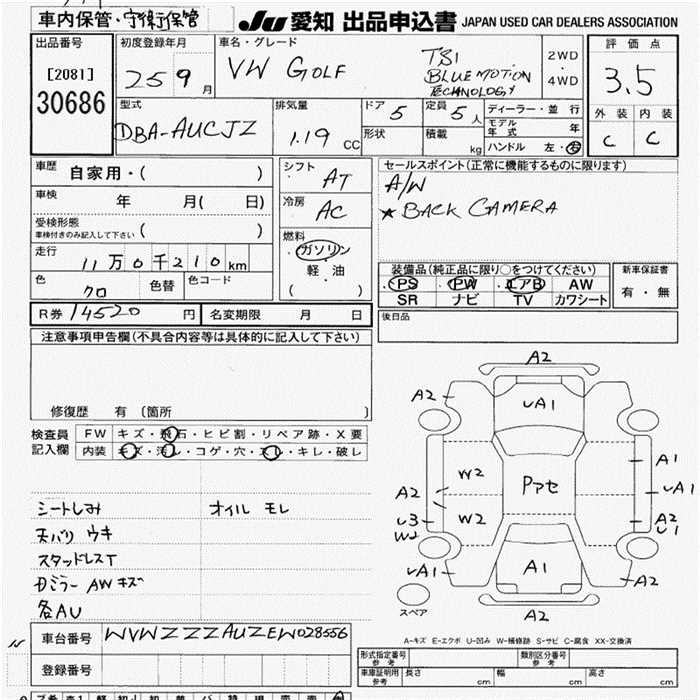 車内保管・守衛保管
JU 愛知 出品申込書 JAPAN USED CAR DEALERS ASSOCIATION
出品番号
[2081]
30686
初度登録年月
25 9 月
車名・グレード
VW GOLF
TSI
BLUEMOTION
TECHNOLOGY
2WD
・
4WD
評価点
3.5
外装 内装
C C
型式
DBA-AUCJZ
排気量
1.19 CC
ドア 5
形状
定員 5 人
積載 kg
ディーラー・並行
モデル年式 年
ハンドル 左・右
車歴 自家用・( )
車検 年 月( 日)
受検形態
車検付きのみ記入して下さい ( )
走行
11万0千210km
色
クロ
色替
色コード
シフト AT
冷房 AC
燃料
・ガソリン
・軽油
( )
セールスポイント(正常に機能するものに限ります)
A/W
★BACK CAMERA
装備品(純正品に限り○をつけてください)
・PS ・PW ・エアB AW
SR ナビ TV カワシート
新車保証書
有・無
R券 14520 円 名変期限 月 日
後日品
注意事項申告欄(不具合内容等は具体的に記入して下さい)
修復歴 有 〔箇所 〕
検査員
記入欄
FW キズ・飛石・ヒビ割・リペア跡・X要
内装 キズ・汚レ・コゲ・穴・スレ・キレ・破レ
シートしみ オイル モレ
天バリ ウキ
スタッドレスT
AW キズ
各AU
A2
A2 UA1
A1
W2 Pアセ UA1
A2
U3 W2 A2
W2 U1
UA1 A1 A2
スペア A2
A-キズ E-エクボ U-凹み W-補修跡 S-サビ C-腐食 XX-交換済
車台番号 WVWZZZAUZEW028556
登録番号
形式指定番号
参考
類別区分番号
参考
車庫証明用
参考
長さ cm 幅 cm 高さ cm